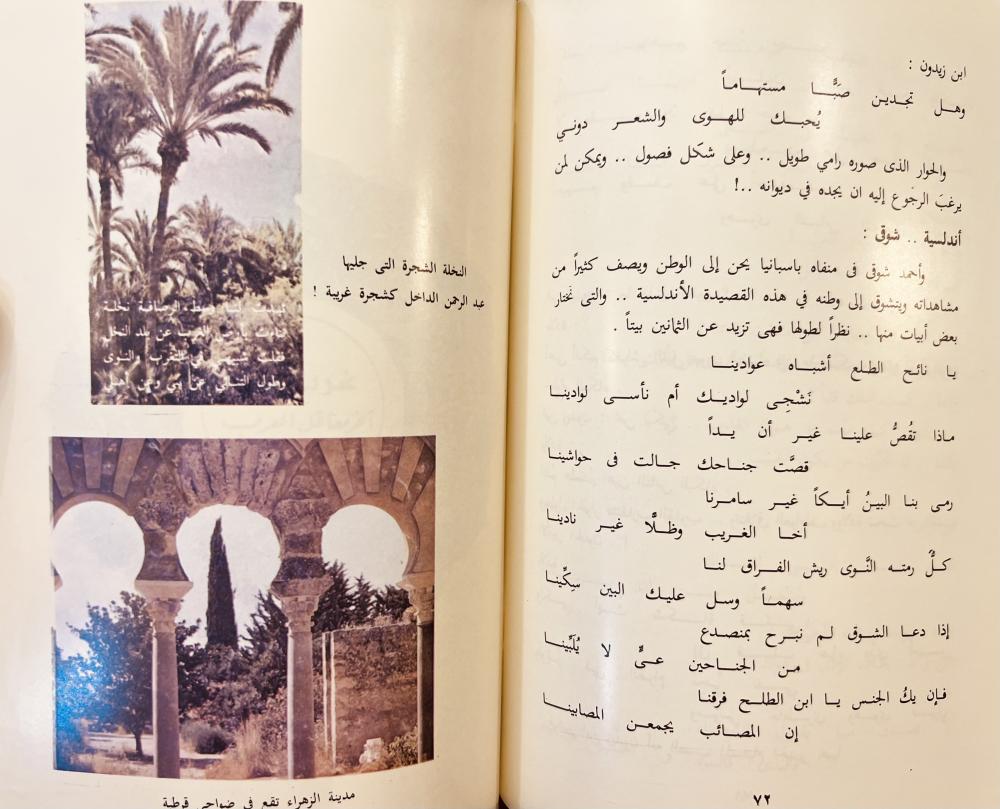 ابن زيدون :
وهـل تجـديـن صَبًّـا مستهـامـاً
يُحبـك للهـوى والشعـر دونـي
والحوار الذى صوره رامي طويل .. وعلى شكل فصول .. ويمكن لمن
يرغبَ الرجوع إليه ان يجده في ديوانه ..!
أندلسية .. شوقى :
وأحمد شوقى فى منفاه باسبانيا يحن إلى الوطن ويصف كثيراً من
مشاهداته ويتشوق إلى وطنه في هذه القصيدة الأندلسية .. والتى نختار
بعض أبيات منها .. نظراً لطولها فهى تزيد عن الثمانين بيتاً .
يـا نائـح الطلـع أشبـاه عوادينـا
نَشْجِـى لواديـك أم نأسـى لوادينـا
مـاذا تقُصُّ علينـا غيـر أن يـداً
قصَّت جناحك جالت فى حواشينا
رمى بنا البينُ أيكـاً غيـر سامرنا
أخـا الغـريب وظـلًّا غيـر نادينـا
كـلٌّ رمتـه النَّـوى ريش الفـراق لنـا
سهمـاً وسـل عليـك البين سِكِّينـا
إذا دعـا الشـوق لـم نبـرح بمنصـدع
مـن الجناحين عـىٍّ لا يُلَبِّينـا
فـإن يكُ الجنس يـا ابن الطلـح فرقنـا
إن المصائب يجمعـن المصابينـا
٧٢
النخلة الشجرة التى جلبها
عبد الرحمن الداخل كشجرة غريبة !
تبدت لنا وسط الرصافة نخلة
تناءت بأرض الغرب عن بلد النخل
فقلت شبيهي في التغرب والنوى
وطول التنائي عن بني وعن أهلي
مدينة الزهراء تقع في ضواحي قرطبة